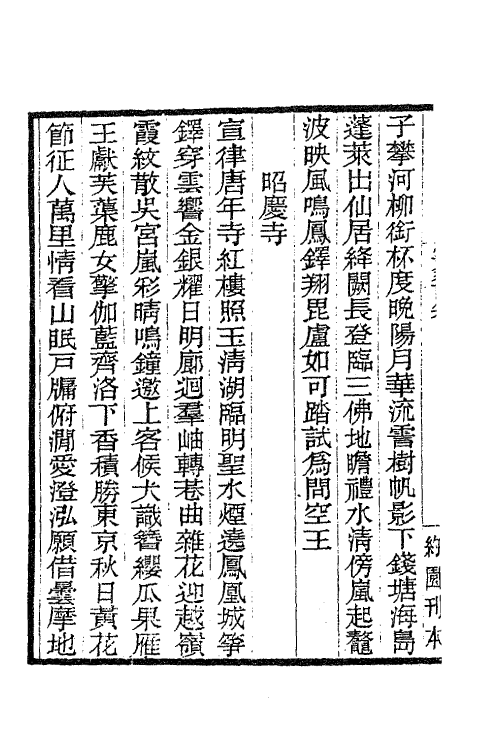 子攀河柳銜杯度晚陽月華流霅樹帆影下錢塘海島
蓬萊出仙居絳闕長登臨三佛地瞻禮水清傍嵐起鼇
波映風鳴鳳鐸翔毘盧如可踏試爲問空王
昭慶寺
宣律唐年寺紅樓照玉清湖臨明聖水煙遶鳳凰城箏
鐸穿雲響金銀耀日明廊迴羣岫轉巷曲雜花迎越嶺
霞紋散吳宮嵐彩晴鳴鐘邀上客候犬識簪纓瓜果雁
王獻芙蕖鹿女擎伽藍齊洛下香積勝東京秋日黃花
節征人萬里情看山眠戸牖俯澗愛澄泓願借曇摩地
約園刊本